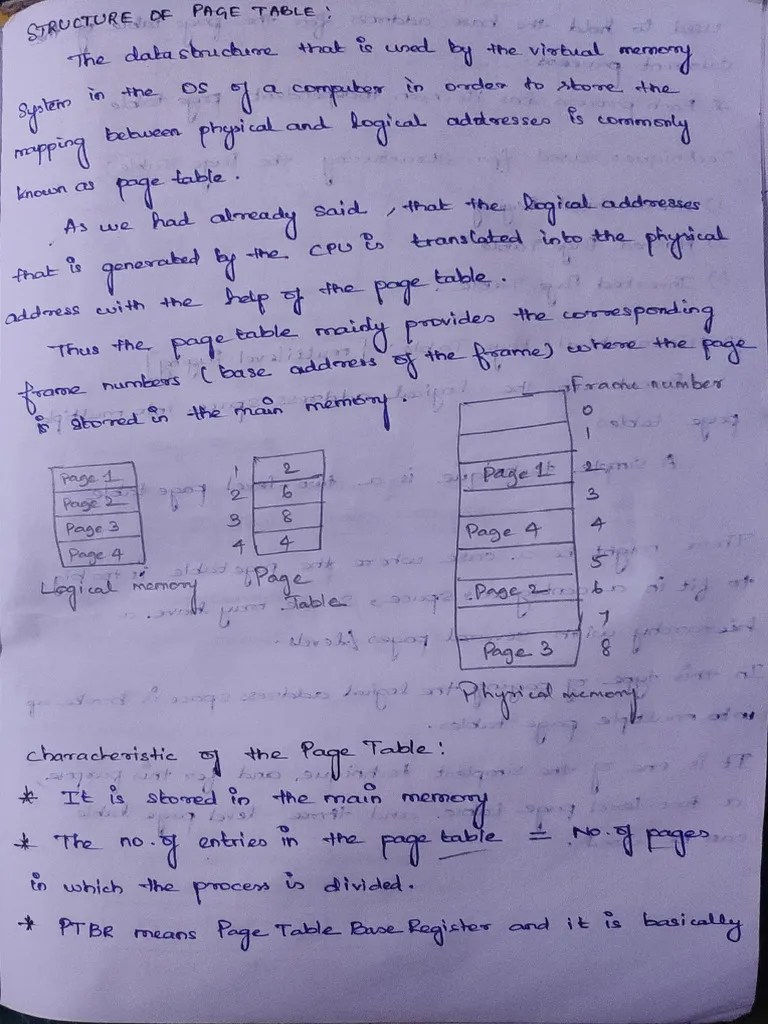 STRUCTURE OF PAGE TABLE:
The datastructure that is used by the virtual memory
System in the OS of a computer in order to store the
mapping between physical and logical addresses is commonly
known as page table.
As we had already said, that the logical addresses
that is generated by the CPU is translated into the physical
address with the help of the page table.
Thus the page table mainly provides the corresponding
frame numbers (base address of the frame) where the page
is stored in the main memory.
Frame number
0
1
Page 1 2
3
Page 4 4
5
Page 2 6
7
Page 3 8
Physical memory
Page 1
Page 2
Page 3
Page 4
Logical memory
1 2
2 6
3 8
4 4
Page
Table
Characteristic of the Page Table:
* It is stored in the main memory
* The no. of entries in the page table = No. of pages
in which the process is divided.
* PTBR means Page Table Base Register and it is basically